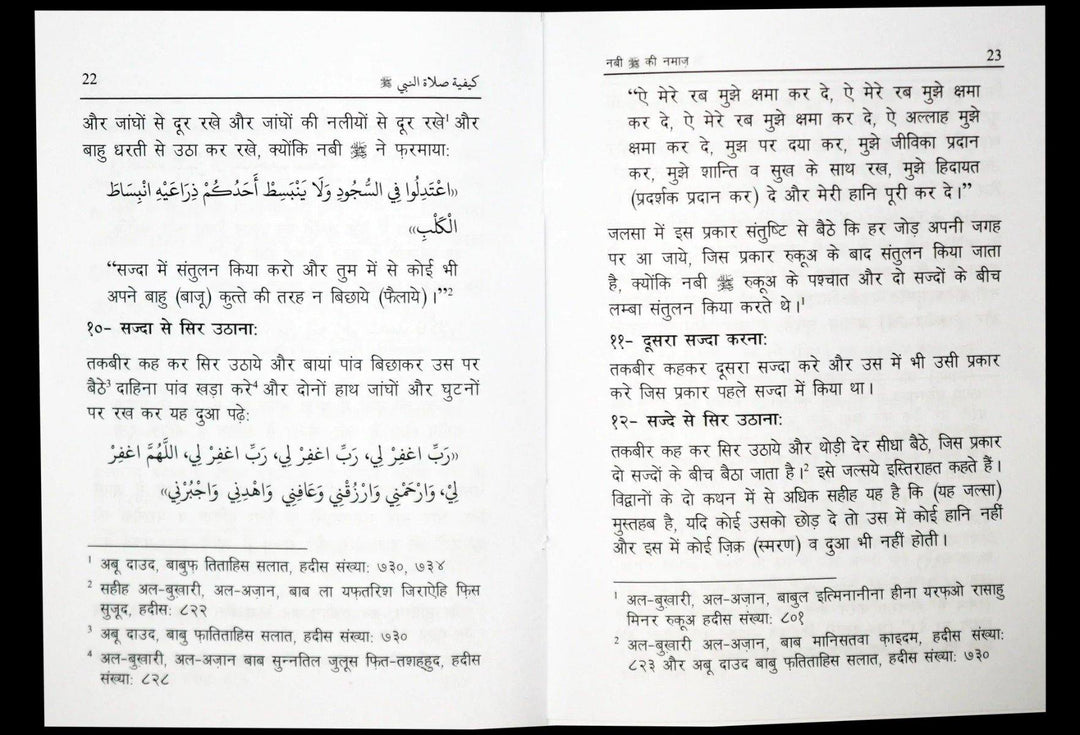 22 كيفية صلاة النبي ﷺ
और जांघों से दूर रखे और जांघों की नलीयों से दूर रखे¹ और
बाहु धरती से उठा कर रखे, क्योंकि नबी ﷺ ने फ़रमाया:
«اعْتَدِلُوا فِي السُّجُودِ وَلَا يَنْبَسِطْ أَحَدُكُمْ ذِرَاعَيْهِ انْبِسَاطَ
الْكَلْبِ»
“सज्दा में संतुलन किया करो और तुम में से कोई भी
अपने बाहु (बाजू) कुत्ते की तरह न बिछाये (फैलाये)।”²
१०- सज्दा से सिर उठाना:
तकबीर कह कर सिर उठाये और बायां पांव बिछाकर उस पर
बैठे³ दाहिना पांव खड़ा करे⁴ और दोनों हाथ जांघों और घुटनों
पर रख कर यह दुआ पढ़े:
«رَبِّ اغْفِرْ لِي، رَبِّ اغْفِرْ لِي، رَبِّ اغْفِرْ لِي، اللَّهُمَّ اغْفِرْ
لِيْ، وَارْحَمْنِي وَارْزُقْنِي وَعَافِنِي وَاهْدِنِي وَاجْبُرْنِي»
¹ अबू दाउद, बाबुफ तिताहिस सलात, हदीस संख्या: ७३०, ७३४
² सहीह अल-बुख़ारी, अल-अज़ान, बाब ला यफ़तरिश जिराऐहि फिस
सुजूद, हदीस: ८२२
³ अबू दाउद, बाबु फ़ातिताहिस सलात, हदीस संख्या: ७३०
⁴ अल-बुख़ारी, अल-अज़ान बाब सुन्नतिल जुलूस फित-तशह्हुद, हदीस
संख्या: ८२८
नबी ﷺ की नमाज़ 23
“ऐ मेरे रब मुझे क्षमा कर दे, ऐ मेरे रब मुझे क्षमा
कर दे, ऐ मेरे रब मुझे क्षमा कर दे, ऐ अल्लाह मुझे
क्षमा कर दे, मुझ पर दया कर, मुझे जीविका प्रदान
कर, मुझे शान्ति व सुख के साथ रख, मुझे हिदायत
(प्रदर्शक प्रदान कर) दे और मेरी हानि पूरी कर दे।”
जलसा में इस प्रकार संतुष्टि से बैठे कि हर जोड़ अपनी जगह
पर आ जाये, जिस प्रकार रुकूअ के बाद संतुलन किया जाता
है, क्योंकि नबी ﷺ रुकूअ के पश्चात और दो सज्दों के बीच
लम्बा संतुलन किया करते थे।¹
११- दूसरा सज्दा करना:
तकबीर कहकर दूसरा सज्दा करे और उस में भी उसी प्रकार
करे जिस प्रकार पहले सज्दा में किया था।
१२- सज्दे से सिर उठाना:
तकबीर कह कर सिर उठाये और थोड़ी देर सीधा बैठे, जिस प्रकार
दो सज्दों के बीच बैठा जाता है।² इसे जल्सये इस्तिराहत कहते हैं।
विद्वानों के दो कथन में से अधिक सहीह यह है कि (यह जल्सा)
मुस्तहब है, यदि कोई उसको छोड़ दे तो उस में कोई हानि नहीं
और इस में कोई ज़िक्र (स्मरण) व दुआ भी नहीं होती।
¹ अल-बुख़ारी, अल-अज़ान, बाबुल इत्मिनानीना हीना यरफ़ओ रासाहु
मिनर रुकूअ हदीस संख्या: ८०१
² अल-बुख़ारी अल-अज़ान, बाब मानिसतवा क़ाइदम, हदीस संख्या:
८२३ और अबू दाउद बाबु फ़तिताहिस सलात, हदीस संख्या: ७३०